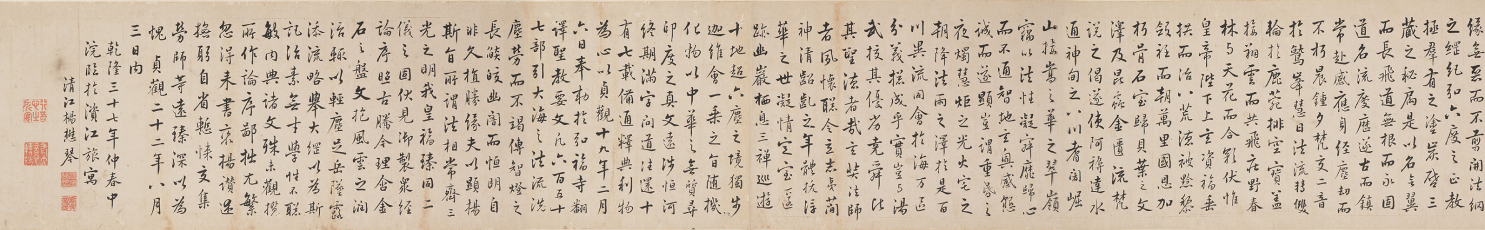 緣無惡而不剪開法網
之經紀弘六度之正教
拯羣有之塗炭啓三
藏之秘扃是以名無翼
而長飛道無根而永固
道名流慶歷遂古而鎮
常赴感應身經塵劫而
不朽晨鍾夕梵交二音
於鷲峯慧日法流轉雙
輪於鹿菀排空寶蓋
接翔雲而共飛莊野春
林與天花而合彩伏惟
皇帝陛下上玄資福垂
拱而治八荒德被黔黎
斂衽而朝萬國恩加
朽骨石室歸貝葉之文
澤及昆蟲金匱流梵
說之偈遂使阿耨達水
通神甸之八川耆闍崛
山接嵩華之翠嶺
竊以法性凝寂靡歸心
而不通智地玄奧感懇
誠而遂顯豈謂重昏之
夜燭慧炬之光火宅之
朝降法雨之澤於是百
川異流同會於海萬區
分義揔成乎實豈與湯
武校其優劣堯舜比
其聖德者哉玄奘法師
者夙懷聰令立志夷簡
神清齠齔之年體拔浮
華之世凝情定室匿
跡幽巖栖息三禪巡遊
十地超六塵之境獨步
迦維會一乘之旨隨機
化物以中華之無質尋
印度之真文遠涉恒河
終期滿字問道往還十
有七載備通釋典利物
為心以貞觀十九年二月
六日奉勅於弘福寺翻
譯聖教要文凡六百五十
七部引大海之法流洗
塵勞而不竭傳智燈之
長燄皎幽闇而恒明自
非久植勝緣何以顯揚
斯旨所謂法相常齊三
光之明我皇福臻同二
儀之固伏見御製衆經
論序照古騰今理含金
石之聲文抱風雲之潤
治輙以輕塵足岳墜露
添流略舉大綱以為斯
記治素無才學性不聰
敏內典諸文殊未觀攬
所作論序鄙拙尤繁
忽得来書褒揚讃述
撫躬自省慙悚交集
勞師等遠臻深以為
愧 貞觀二十二年八月
三日內
乾隆三十七年仲春中
浣臨於濟江旅寓
清江楊懋琴